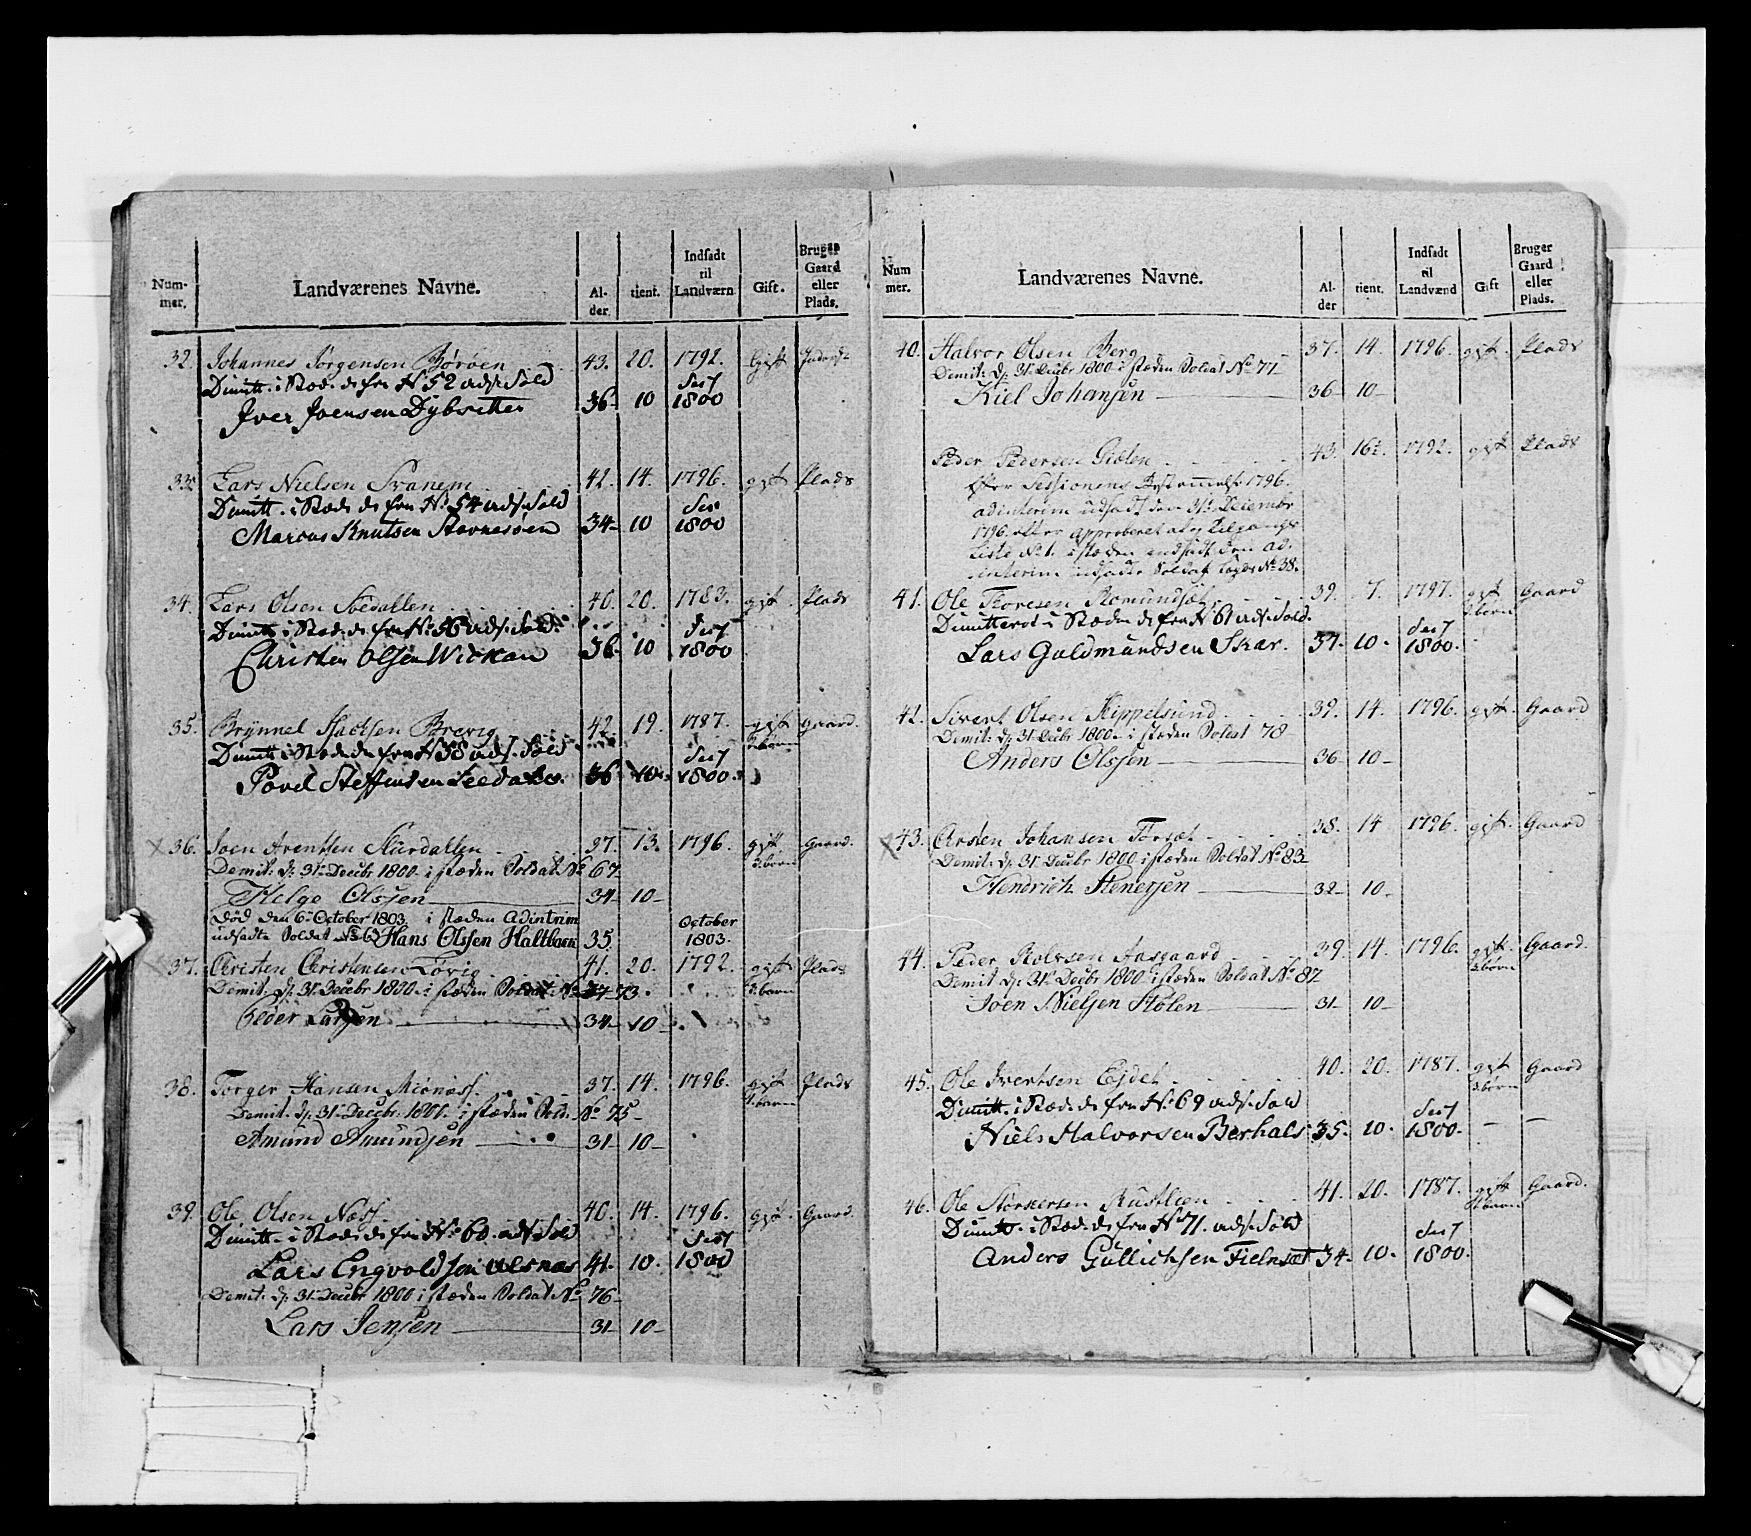 Num-
mer.
Landværenes Navne.
Al-
der.
tient.
Indsadt
til
Landværn
Gift.
Bruger
Gaard
eller
Plads.
32. Johannes Jörgensen Böröen 43. 20. 1792. Ugift
Dimitt. i Stæd. de fra No 52 uds. Sold Sess
Iver Joensen Dybsetter 36 10 1800
33. Lars Nielsen Svanem 42. 14. 1796. gift Plads
Dimitt. i Stæd. de fra No 54 uds. Sold Ses
Marcus Knutsen Stavnesöen 34 10 1800
34. Lars Olsen Söedallen 40. 20. 1783. gift. Plads
Dimitt. i Stæd. de fra No 56 uds. Sold. Sess
Christen Olsen Wickan 36 10 1800
35. Brynnel Brevig 42. 19. 1787. gift Gaard.
Dimitt. i Stæd. de fra No 58 uds. Sold Sess
Povel Steffensen 36 10 1800
36. Joen Arentsen Slürdallen 37. 13. 1796. gift. Gaard.
Demit: d: 31te Decbr 1800 i stæden Soldat No 67 3. börn
Helge Olsen 34 10
död den 6te October 1803. i stæden Adintrim October
udsadte Soldat Hans Olssen Haltbaen 35. 1803.
37. Christen Christensen Lövig 41. 20. 1792. gift Plads
Demit. d: 31te Decbr 1800. i stæden Soldat. No 73. börn
Peder Larsen 34 10
38. Torger Hansen Miönæss. 37. 14. 1796. gift Plads
Demit. d: 31. Decbr. 1800. i stæden Sold. No 75
Amund Amundsen 31 10
39. Ole Olsen Næss. 40. 14. 1796. gift. Gaard.
Dimitt. i Stæd. de fra No 60. uds. Sold Sess
Lars Engvoldsen Ulsnæs 41. 10. 1800
Demit: d: 31te Decbr 1800 i stæden Soldat No 76
Lars Jensen 31 10
Num
mer.
Landværenes Navne.
Al-
der
tient.
Indsadt
til
Landværnd
Gift
Bruger
Gaard
eller
Plads.
40. Halvor Olsen Berg 37. 14. 1796. gift. Plads
Demit: d: 31te Decbr 1800 i stæden Soldat No 77
Kiel Johansen 36 10
Peder Pedersen Giölen 43. 16½. 1792. gift Plads
Efter Sessionens 1796.
adinterim udsadt den 31te Decembr
1796. efter approberet Tilgangs
Liste No 1. i stæden indsadt den ad-
interim indsadte Soldat Lægds No 38.
41. Ole Toresen Romundsæt 39. 7. 1797. gift Gaard
Dimitteret i Stæden de fra No 61 uds. Sold. 2 börn
Sess
Lars Guldmundsen Skar. 37. 10. 1800.
42. Sivert Olsen Kippelsund 39. 14. 1796. gift. Gaard
Demit: d: 31te Decbr 1800 i stæden Soldat 78
Anders Olssen 36 10
43. Carsten Johansen Törset 38. 14 1796. gift. Gaard
Demit: d: 31te Decbr 1800 i stæden Soldat No 83
Hendrich Stenersen 32 10
44. Peder Rolvsen Aasgaard 39. 14. 1796. gift. Gaard.
Demit d: 31te Decbr 1800 i stæden Soldat No 87 3. börn
Joen Nielsen Stölen 31 10
45. Ole Ivertsen Eidet 40. 20. 1787. gift Gaard
Dimitt. i Stæd. de fra No 69 uds. Sold 3. börn
Sess
Niels Halvorsen Berhals 35. 10. 1800. – –
46. Ole Störkersen Rustlien 41. 20. 1787. gift Gaard.
Dimitt. i Stæd. de fra No 71. uds. Sold börn
Sess
Anders Gullichsen Fielnset 34. 10. 1800.